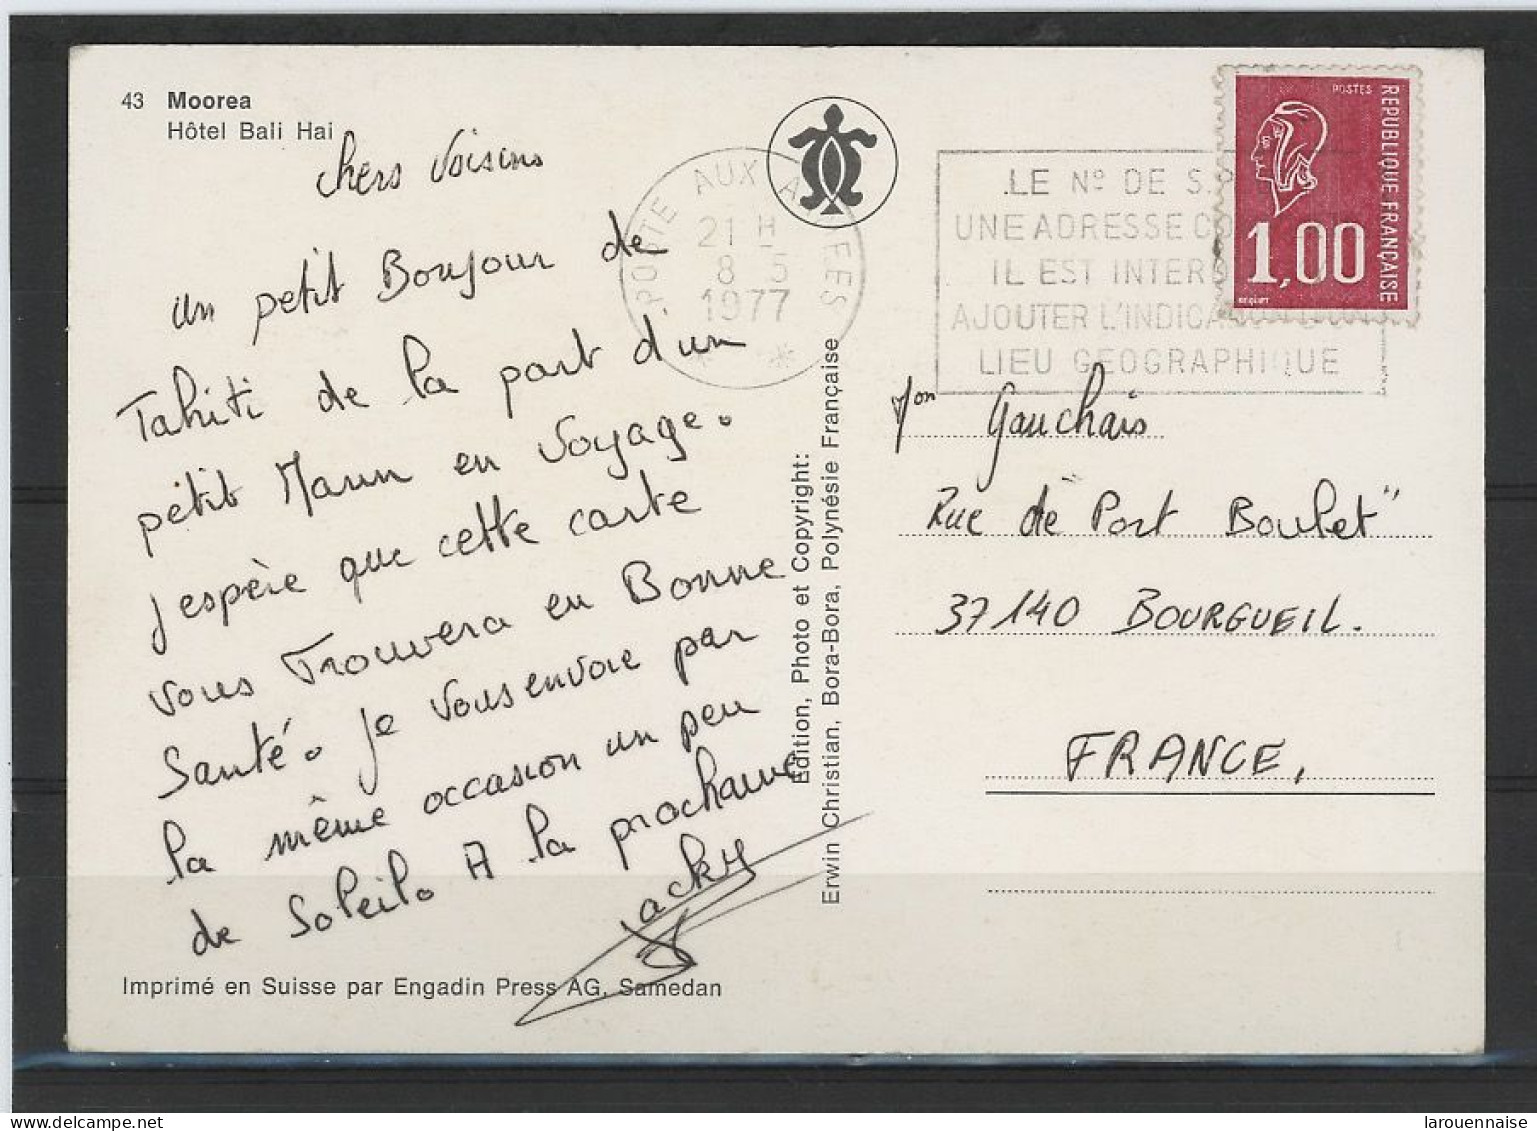 43 Moorea
Hôtel Bali Hai
Chers Voisins
un petit Bonjour de
Tahiti de la part d'un
petit Marin en Voyage.
J'espère que cette carte
vous Trouvera en Bonne
Santé. Je vous envoie par
la même occasion un peu
de Soleil. A la prochaine
Jacky
Imprimé en Suisse par Engadin Press AG, Samedan
Edition, Photo et Copyright:
Erwin Christian, Bora-Bora, Polynésie Française
POSTE AUX ARMEES
21 H
8 - 5
1977
LE Nº DE S.P.
UNE ADRESSE
IL EST
AJOUTER L'INDICATION
LIEU GEOGRAPHIQUE
POSTES
REPUBLIQUE FRANÇAISE
1,00
BEQUET
Mon Gauchais
Rue de "Port Boulet"
37140 BOURGUEIL.
FRANCE,
larouennaise